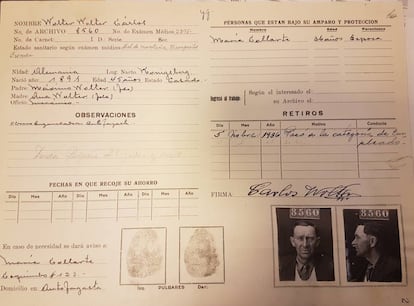 NOMBRE Walter Walter Carlos
No. de ARCHIVO 8560 No. de Exámen Médico
No. de Carnet: 1 D. Serie
Estado sanitario según exámen médico
Nidad: Alemania Lug. Nacto
Nació año 1891 Edad 45 años Estado Casado
Padre Walter (fdo)
Madre Ana Walter (fda)
Oficio
OBSERVACIONES
Antofagasta
FECHAS EN QUE RECOJE SU AHORRO
Día Mes Año Día Mes Año Día Mes Año
En caso de necesidad se dará aviso a
María Collarte
Coquimbo 822.-
Domicilio en Antofagasta
Izq. PULGARES Der.
PERSONAS QUE ESTAN BAJO SU AMPARO Y PROTECCION
Nombre Edad Parentesco
María Collarte 36 años Esposa
Ingresó al trabajo
Según el interesado el
su Archivo el
RETIROS
Día Mes Año Motivo Conducta
5 Nobre 1936 Paso a la categoría de Em
pleado.-
FIRMA: Carlos Walter
8560
8560